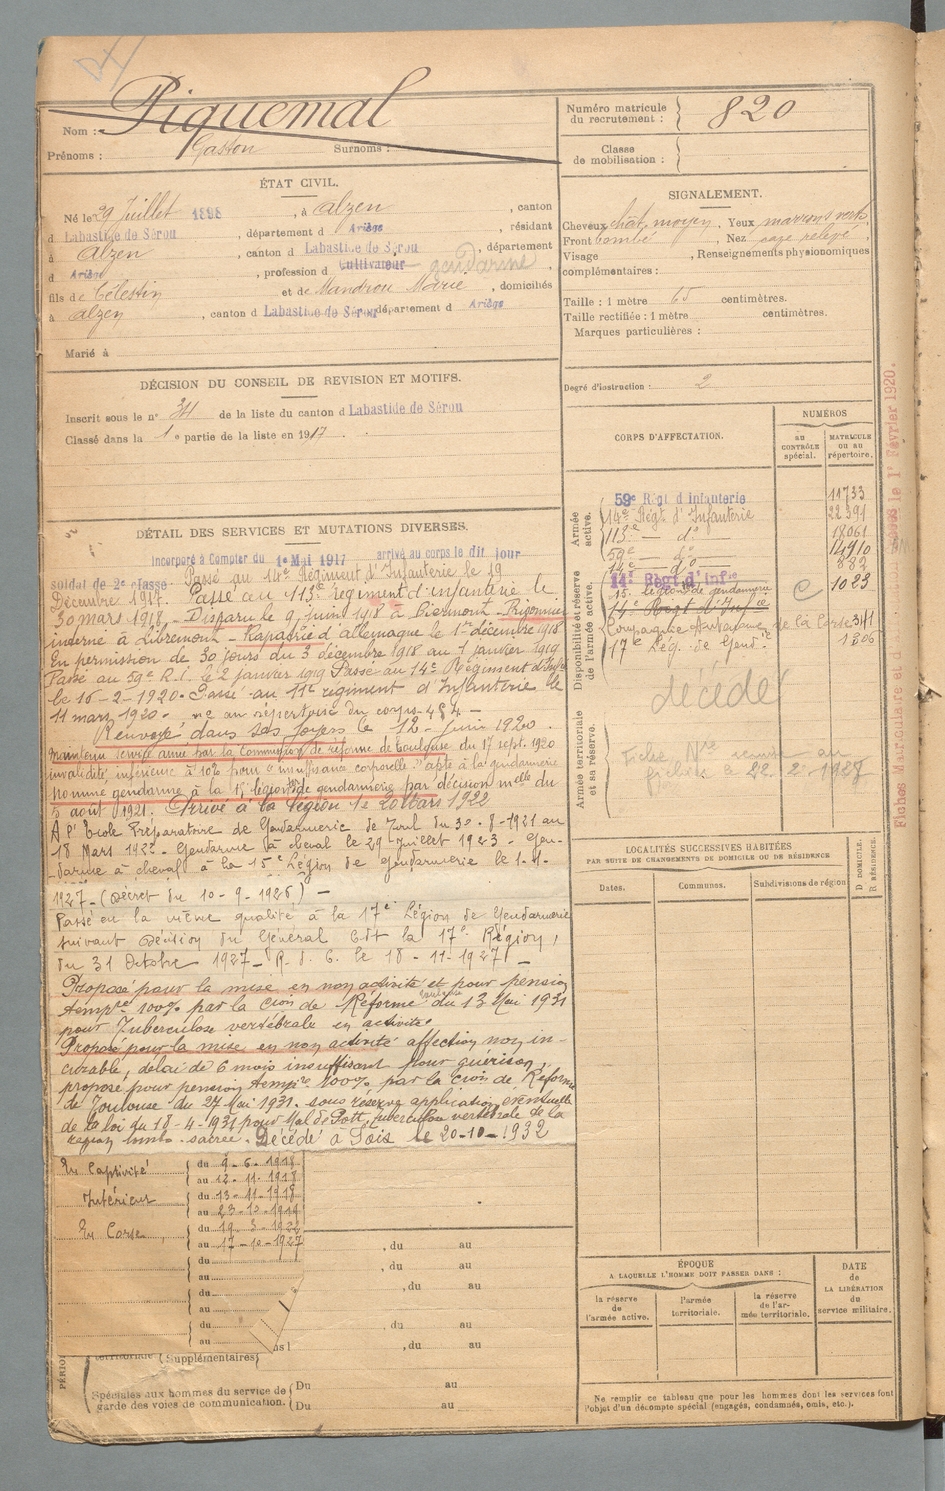 Piquemal
Nom :
Prénoms : Gaston Surnoms :
Numéro matricule du recrutement : 820
Classe de mobilisation :
ÉTAT CIVIL.
Né le 29 Juillet 1898, à Alzen, canton
d Labastide de Sérou, département d Ariège, résidant
à Alzen, canton d Labastide de Sérou, département
d Ariège, profession d Cultivateur gendarme
fils de Célestin et de Mandrou Marie, domiciliés
à Alzen, canton d Labastide de Sérou département d Ariège
Marié à
SIGNALEMENT.
Cheveux chât. moyen, Yeux marrons verts
Front bombé, Nez relevé
Visage , Renseignements physionomiques
complémentaires :
Taille : 1 mètre 65 centimètres.
Taille rectifiée : 1 mètre centimètres.
Marques particulières :
Degré d'instruction : 2
DÉCISION DU CONSEIL DE REVISION ET MOTIFS.
Inscrit sous le n° de la liste du canton d Labastide de Sérou
Classé dans la 1 e partie de la liste en 1917.
CORPS D'AFFECTATION.
NUMÉROS
au CONTRÔLE spécial.
MATRICULE ou au répertoire.
Armée active.
59e Régt d'Infanterie 11733
14e Régt. d'Infanterie 22391
113e — d° 18061
59e — d° 14910
14e — d° 882
Disponibilité et réserve de l'armée active.
14e Régt d'Infie 1023
15e légion de gendarmerie
14e Régt d'Infie
Compagnie de la Corse
17e Lég. de Gend. 1306
décédé
Armée territoriale et sa réserve.
Fiche au
fichier le 22. 2. 1927
Fiches Matriculaire et le 1er Février 1920.
DÉTAIL DES SERVICES ET MUTATIONS DIVERSES.
Incorporé à Compter du 1er Mai 1917 arrivé au corps le dit jour
soldat de 2e classe. Passé au 14e Régiment d'Infanterie le 19
Décembre 1917. Passé au 113e régiment d'infanterie le
30 mars 1918. Disparu le 9 juin 1918 à Piermont. Prisonnier
interné à Libremont. Rapatrié d'allemagne le 1er décembre 1918
En permission de 30 jours du 3 décembre 1918 au 7 janvier 1919
Passé au 59e R.I. le 2 janvier 1919 Passé au 14e Régiment d'Infie
le 16-2-1920. Passé au 11e régiment d'Infanterie le
11 mars 1920. n° au répertoire du corps 484 —
Renvoyé dans ses foyers le 12 Juin 1920.
Maintenu service armé par la Commission de réforme de Toulouse du 17 sept. 1920
invalidité inférieure à 10% pour "insuffisance corporelle" apte à la gendarmerie
Nommé gendarme à la 15e légion bis de gendarmerie par décision mlle du
5 août 1921. Arrivé à la légion le 20 Mars 1922
A l'Ecole Préparatoire de Gendarmerie de Toul du 30-8-1921 au
18 Mars 1922. Gendarme à cheval le 29 Juillet 1923. Gen-
darme à cheval à la 15e Légion de gendarmerie le 1-4-
1927 - (Décret du 10-9-1926) —
Passé en la même qualité à la 17e Légion de Gendarmerie
suivant Décision du Général Cdt la 17e Région,
du 31 Octobre 1927 - R. d. C. le 18-11-1927 —
Proposé pour la mise en non activité et pour pension
tempre 100% par la Cion de Réforme Toulouse du 13 Mai 1931
pour Tuberculose vertébrale en activité.
Proposé pour la mise en non activité affection non in-
curable, délai de 6 mois insuffisant pour guérison,
proposé pour pension tempre 100% par la Cion de Réforme
de Toulouse du 27 Mai 1931. sous réserve application éventuelle
de la loi du 18-4-1931 pour Mal de Pott, tuberculose vertébrale de la
région lombo-sacrée. Décédé à Foix le 20-10-1932
En Captivité du 9-6-1918
au 12-11-1918
Intérieur du 13-11-1918
au 23-10-1919
En Corse, du 19-3-1922
au 17-10-1927
du
au
du
au
du
au
, du au
, du au
, du au
, du au
, du au
territoriale (Supplémentaires)
Spéciales aux hommes du service de garde des voies de communication.
Du au
Du au
LOCALITÉS SUCCESSIVES HABITÉES
PAR SUITE DE CHANGEMENTS DE DOMICILE OU DE RÉSIDENCE.
Dates. Communes. Subdivisions de région D DOMICILE. R RÉSIDENCE.
ÉPOQUE
A LAQUELLE L'HOMME DOIT PASSER DANS :
la réserve de l'armée active.
l'armée territoriale.
la réserve de l'armée territoriale.
DATE de LA LIBÉRATION du service militaire.
Ne remplir ce tableau que pour les hommes dont les services font
l'objet d'un décompte spécial (engagés, condamnés, omis, etc.).